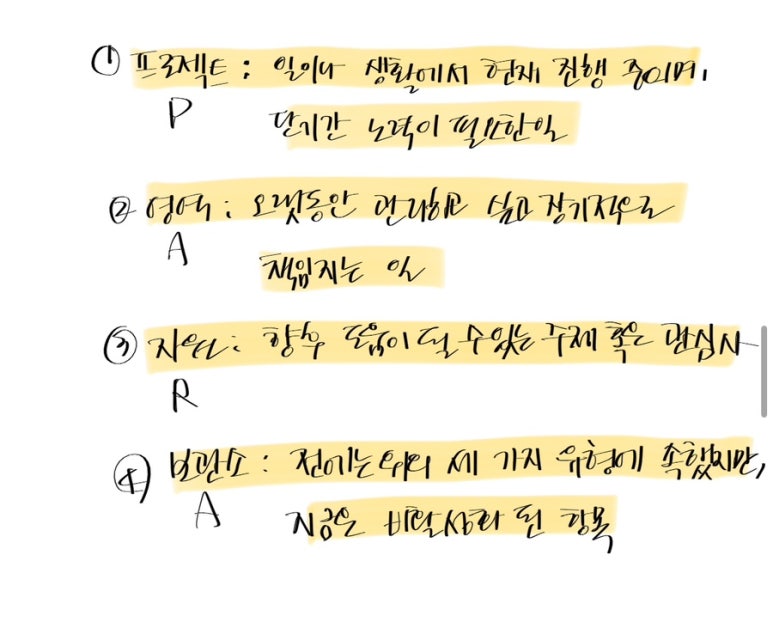 ① 프로젝트 : 일이나 생활에서 현재 진행 중이며,
P 단기간 노력이 필요한 일
② 영역 : 오랫동안 관리하고 싶고 장기적으로
A 책임지는 일
③ 자원 : 향후 도움이 될 수 있는 주제 혹은 관심사
R
④ 보관소 : 전에는 위의 세 가지 유형에 속했지만,
A 지금은 비활성화 된 항목